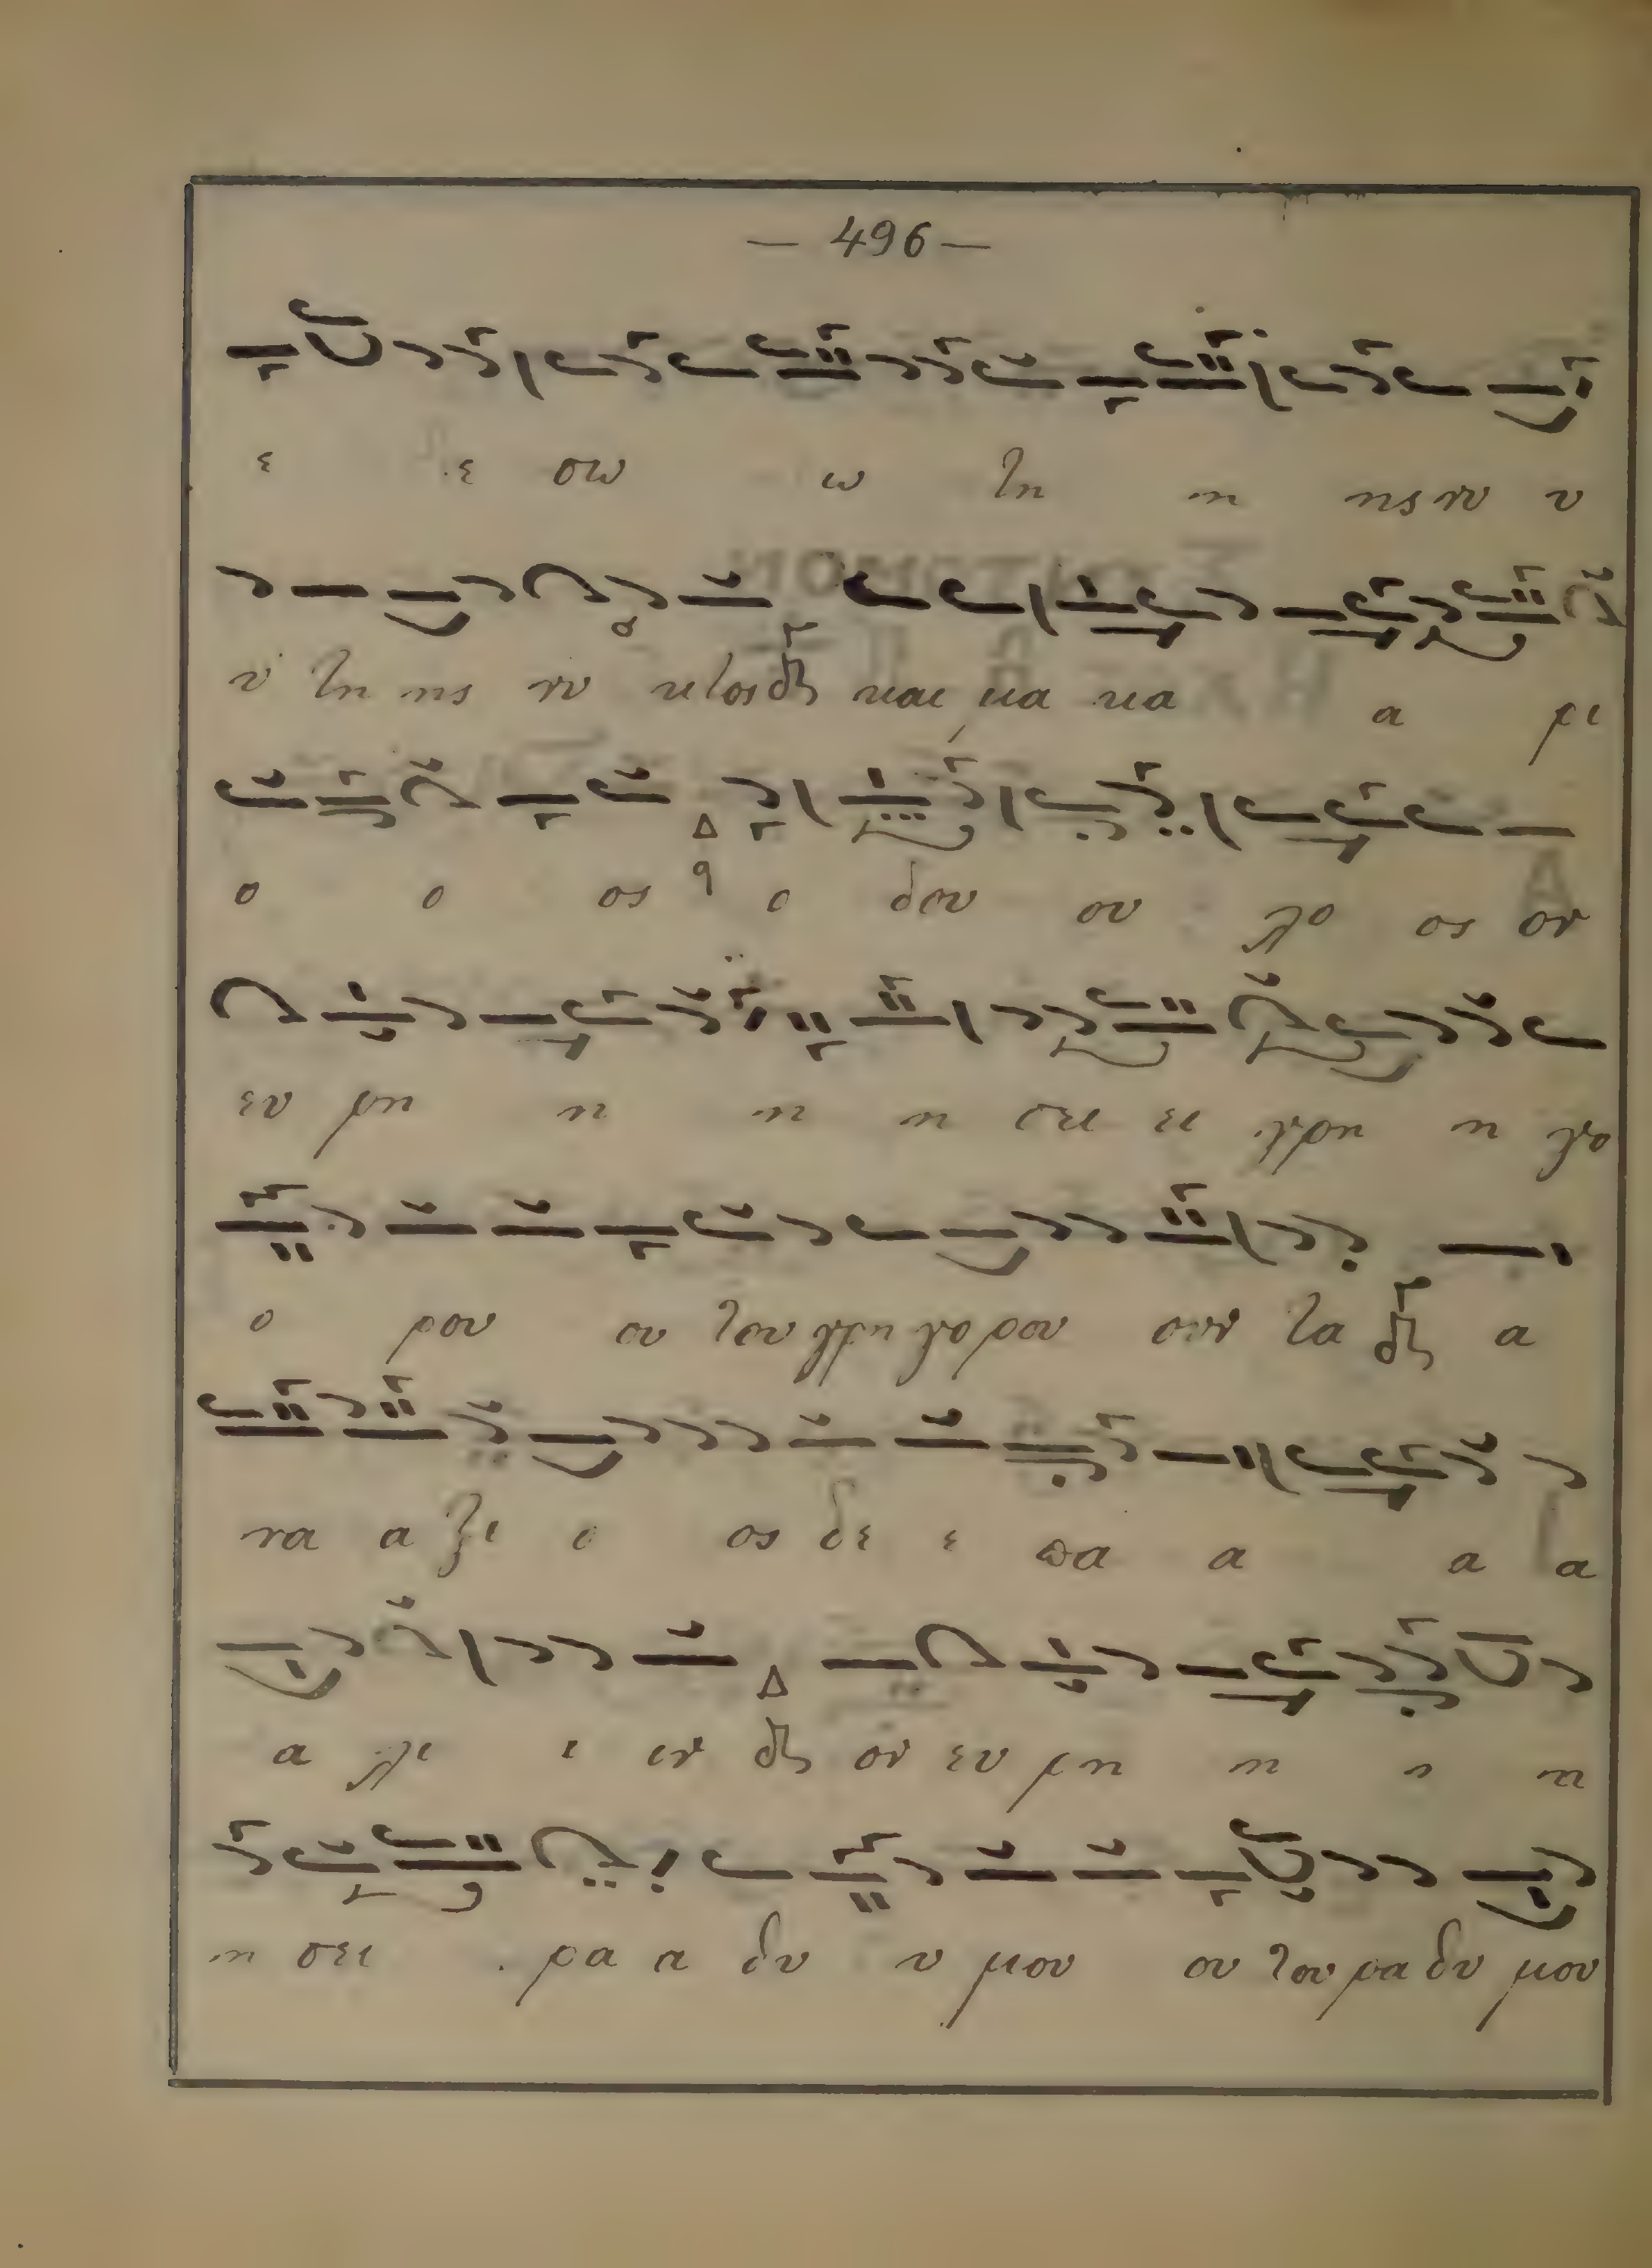 — 496 —
ε ε σω ω τη η ης νυ υ
υ τη ης νυ κτος και μα κα α ρι
ο ο ος ο δου ου λο ος ον
ευ ρη η η η σει ει γρη η γο
ο ρου ου του γρη γο ρου ουν τα α
να α ξι ο ος δε ε πα α α α
α λι ι ιν ον ευ ρη η η η
η σει ρα α θυ υ μου ου του ρα θυ μου